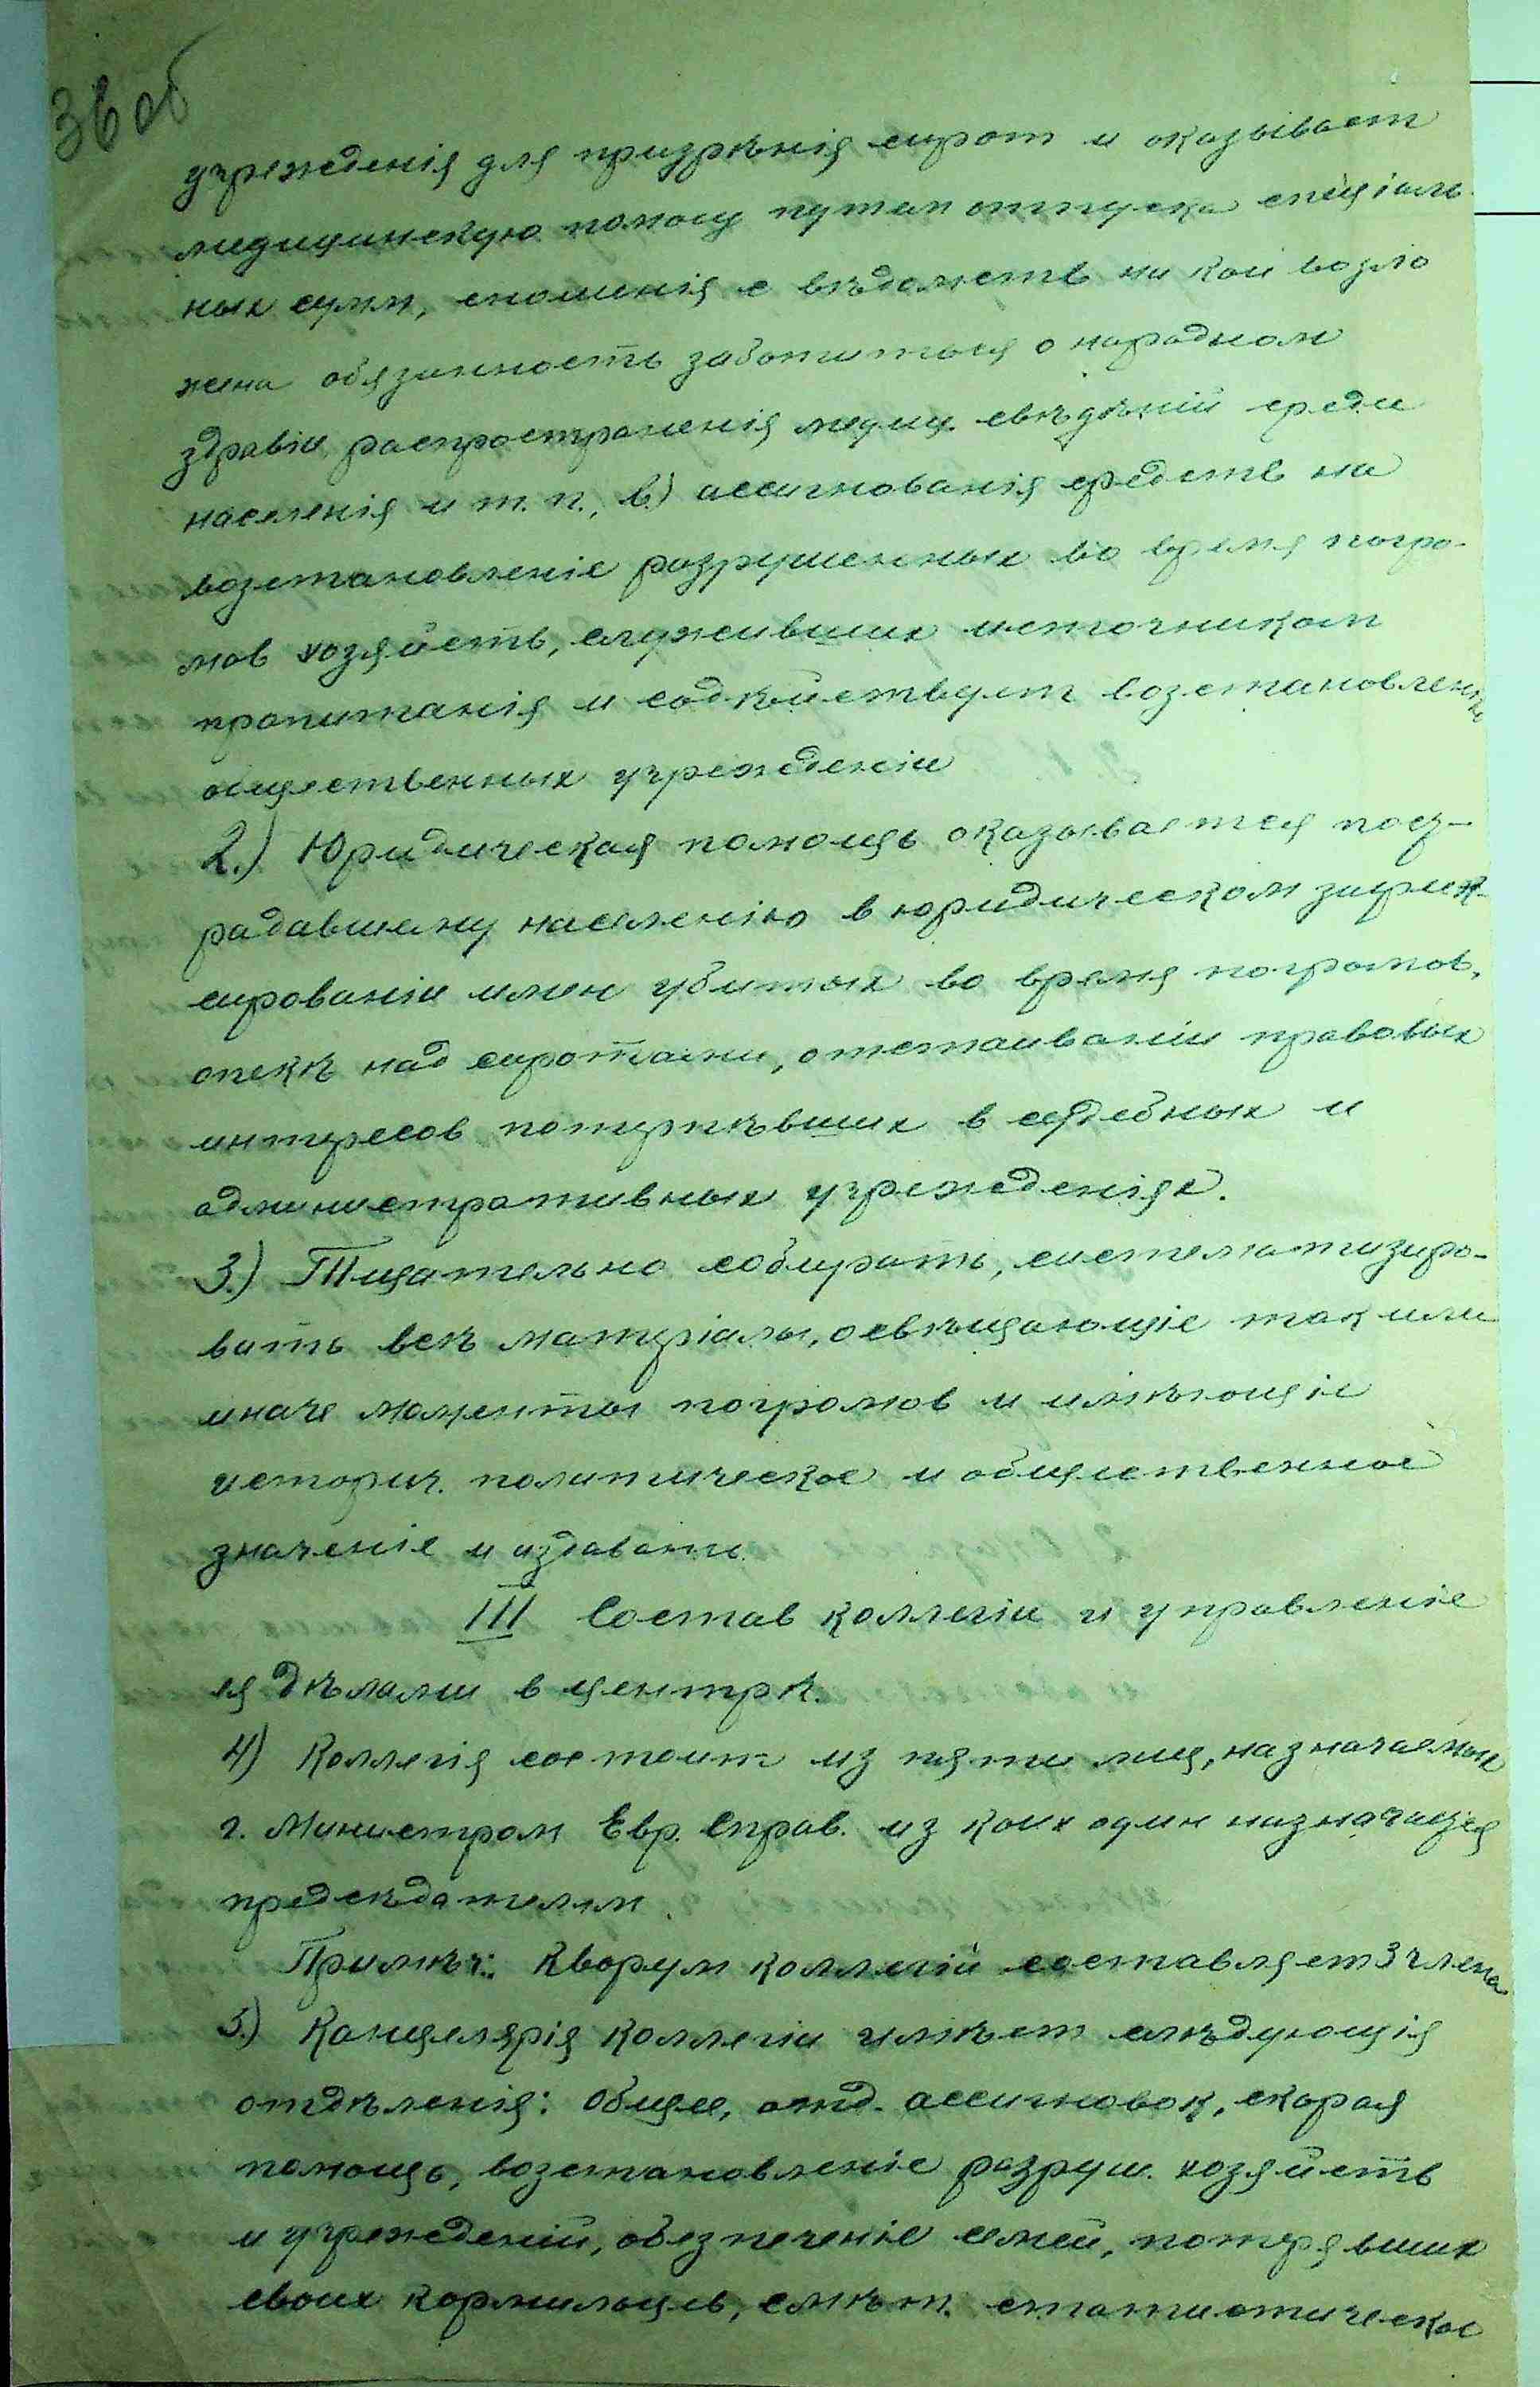 36 об
учрежденія для призрѣнія сирот и оказывает
медицинскую помощ путем отпуска спеціаль-
ных сумм, сношенія с вѣдомств на кои возло
жена обязанность заботиться о народном
здравіи, распространенія медиц. свѣдѣній среди
населенія и т. п., в.) ассигнованія средств на
возстановленіе разрушенных во время погро-
мов хозяйств, служивших источником
пропитанія и содѣйствует возстановленію
общественных учрежденіи
2.) Юридическая помощь оказывается пост-
радавшему населенію в юридическом зафик-
сированіи имен убитых во время погромов,
опекѣ над сиротами, отстаиваніи правовых
интересов потерпѣвших в судебных и
административных учрежденіях.
3.) Тщательно собирать, систематизиро-
вать всѣ матеріалы, освѣщающіе так или
иначе моменты погромов и имѣющіе
историч. политическое и общественное
значеніе и издавать.
III Состав коллегіи и управленіе
ея дѣлами в центрѣ.
4) Коллегія состоит из пяти лиц, назначаемых
г. Министром Евр. Справ. из коих один назначается
предсѣдателем.
Примѣч: Кворум коллегій составляет 3 члена
5.) Канцелярія коллегіи имѣет слѣдующія
отдѣленія: общее, отд. ассигновок, скорая
помощь, возстановленіе разруш. хозяйств
и учрежденій, обезпеченіе семей, потерявших
своих кормильцев, смѣт. статистическое